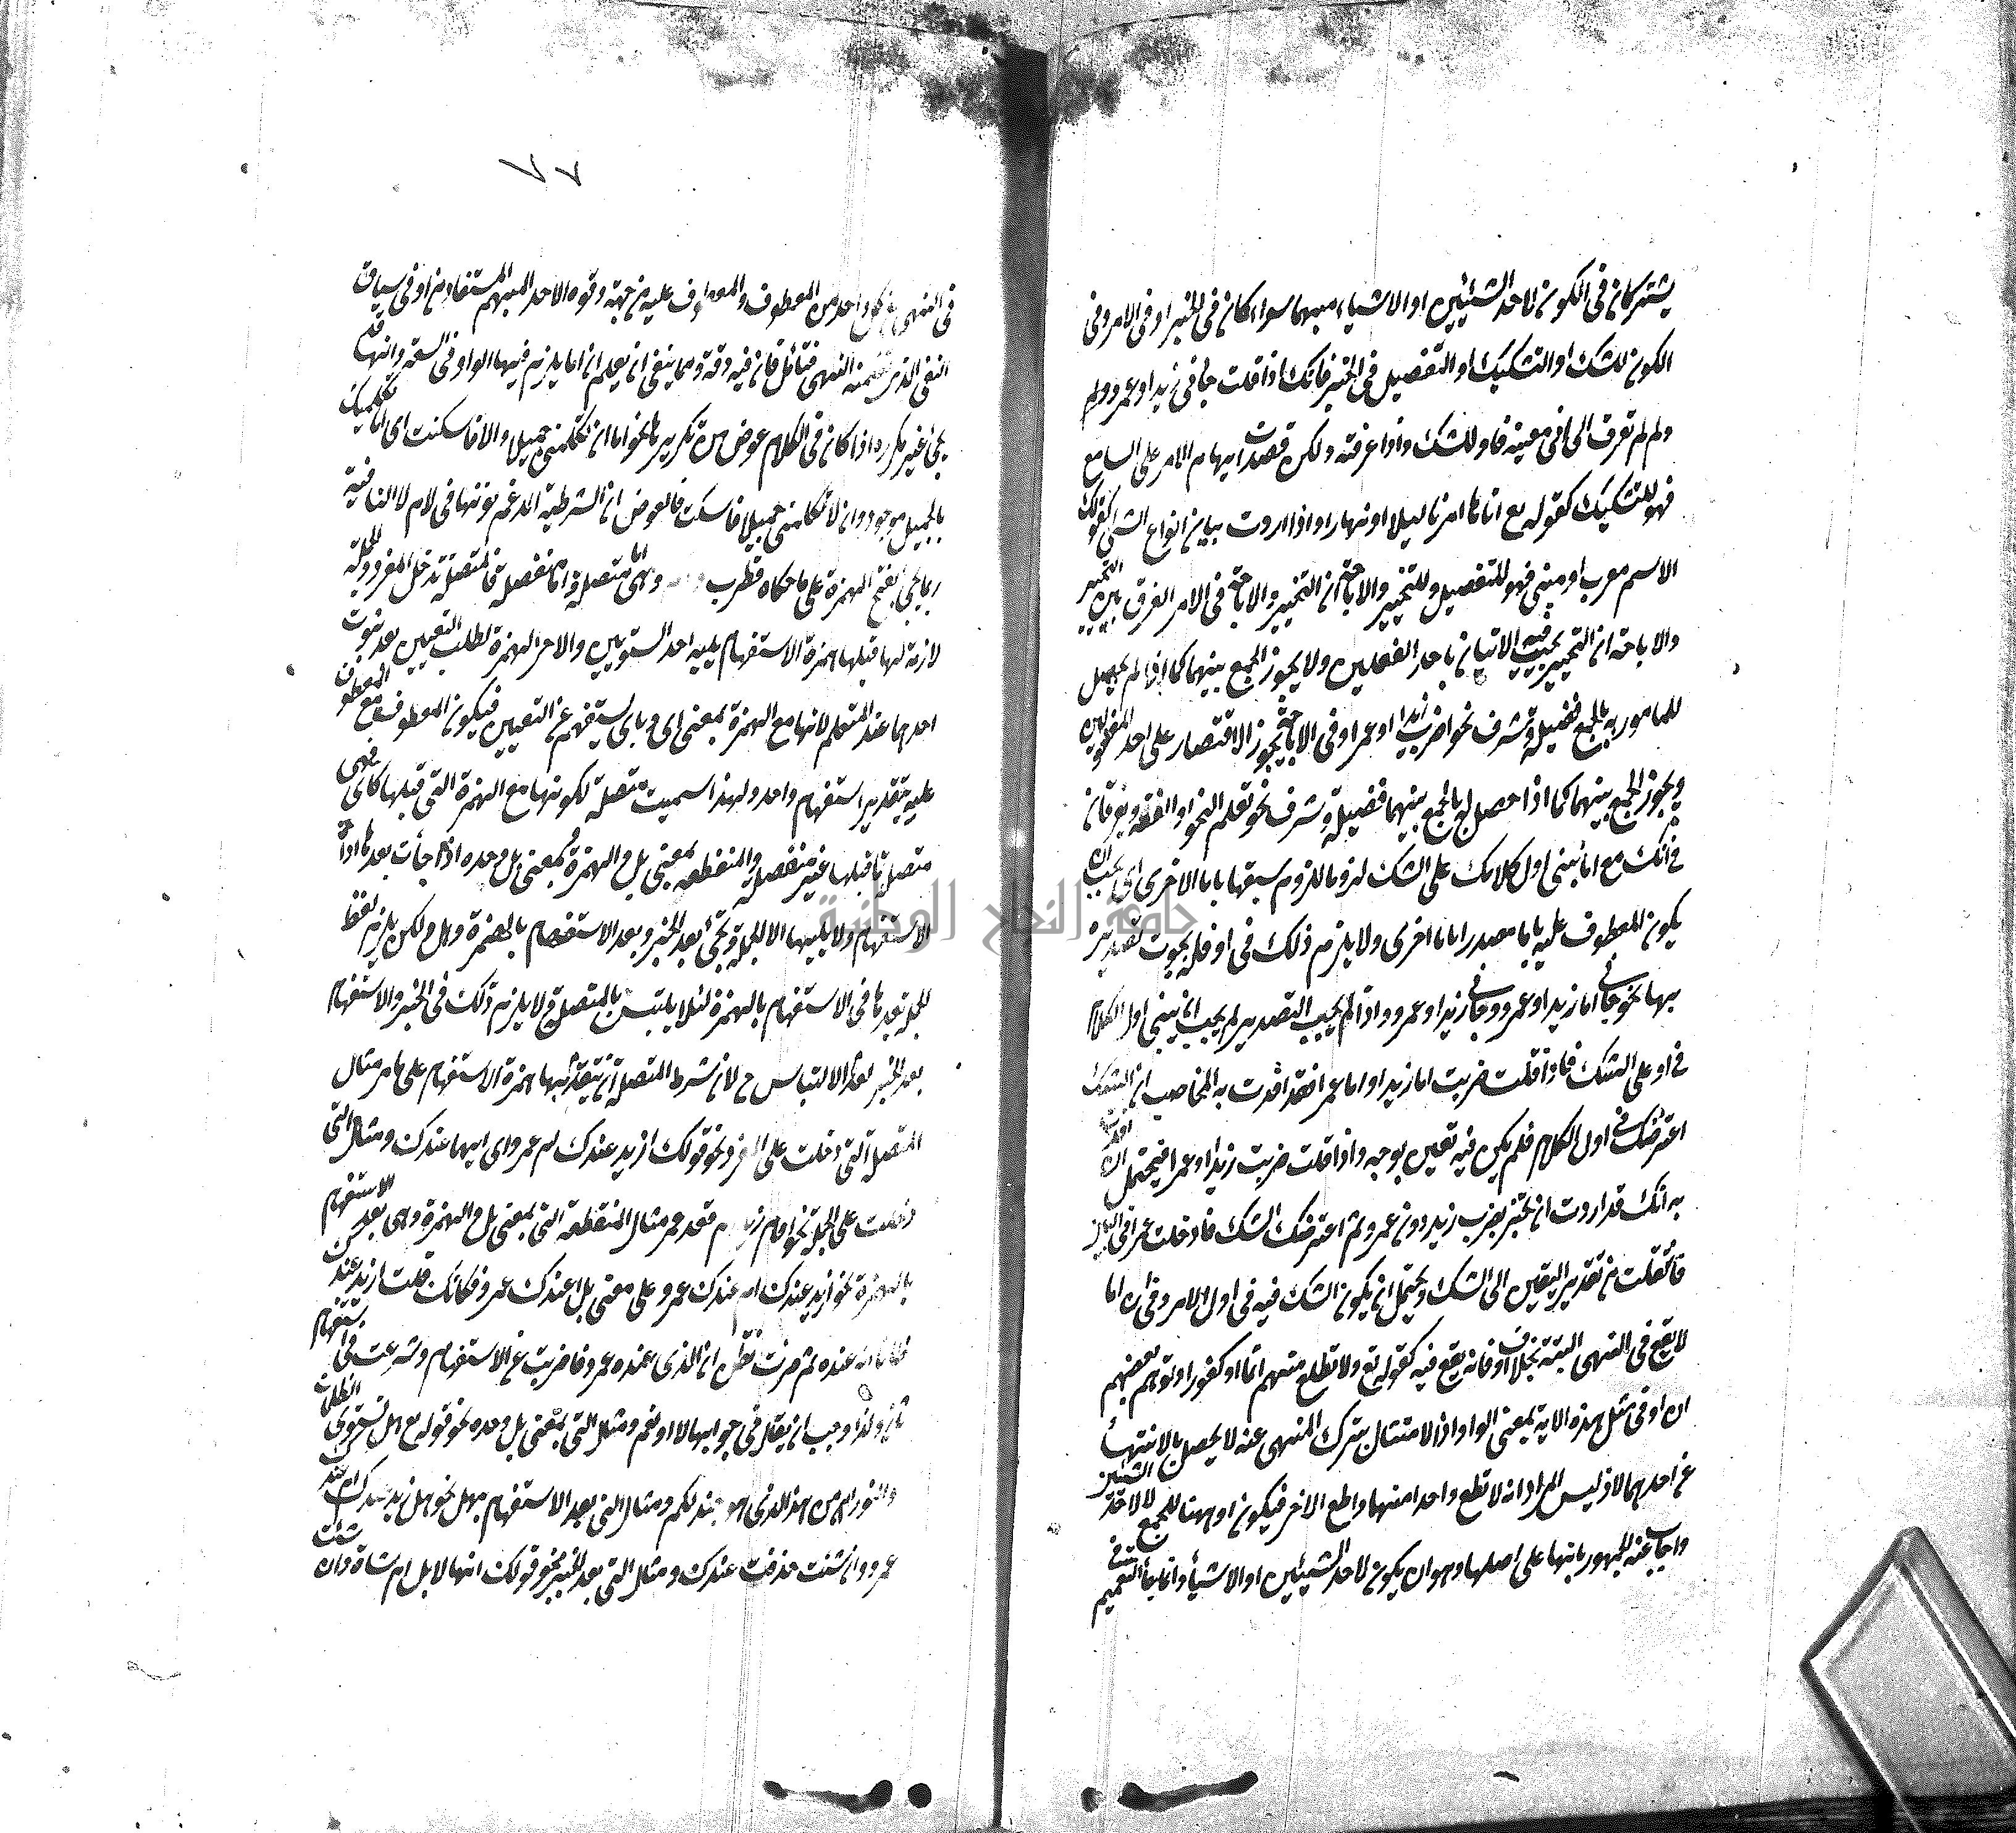 يشتركان فى الكون لاحد الشيئين او الاشياء مبهما سواء كان فى الخبر او فى الامر وفى
الكون للشك او التشكيك او التفصيل فى الخبر فانك اذا قلت جاءنى زيد او عمرو ولم
ولم تعرف الجائى معينه فاو للشك واذا عرفته ولكن قصدت ابهام الامر على السامع
فهو للتشكيك كقوله تع اتاها امرنا ليلا او نهارا واذا اردت بيان انواع الشئ كقولك
الاسم معرب او مبنى فهو للتفصيل وللتخيير والاباحة ان التخيير والاباحة فى الامر الفرق بين التخيير
والاباحة ان التخيير يجب فيه الاتيان باحد الفعلين ولا يجوز الجمع بينهما كما اذا لم يحصل
للمامور به بالجمع فضيلة وشرف نحو اضرب زيدا او عمرا وفى الاباحة يجوز الاقتصار على احد الفعلين
ويجوز الجمع بينهما كما اذا حصل له بالجمع بينهما فضيلة وشرف نحو تعلم النحو او الفقه ويفرقان
فى انك مع اما تبنى اول كلامك على الشك لزوما للزوم سبقها باما الاخرى اى يجب ان
يكون المعطوف عليه باما مصدرا باما اخرى ولا يلزم ذلك فى او فله يجوز تصديره
بها نحو جاءنى اما زيد او عمرو وجاءنى زيد او عمرو واذا لم يجب التصدير لم يجب ان يبنى اول الكلام
فى او على الشك فاذا قلت ضربت اما زيدا او اما عمرا فقد افدت به المخاطب ان الشك
اعترضك فى اول الكلام فلم يكن فيه تعيين بوجه واذا قلت ضربت زيدا او عمرا فيحتمل ان افدت
به انك قد اردت ان تخبر بضرب زيد دون عمرو ثم اعترضك الشك فادخلت عمرا فى البيان
فانتقلت من تقدير اليقين الى الشك ويحتمل ان يكون الشك فيه فى اول الامر وفى ان اما
لا يقع فى النهى البتة بخلاف او فانه يقع فيه كقوله تع ولا تطع منهم اثما او كفورا وتوهم بعضهم
ان او فى مثل هذه الاية بمعنى الواو اذ الامتثال بترك المنهى عنه لا يحصل بالانتهاء
عن احدهما لا ذليس المراد انه لا تطع واحدا منهما واطع الاخر فيكون او ههنا للجمع لا لاحد الشيئين
واجاب عنه الجمهور بانها على اصلها وهو ان يكون لاحد الشيئين او الاشياء وانما جاء التعميم
٧٧
فى النهى فى كل واحد من المعطوف والمعطوف عليه من جهة وقوع الاحد المبهم المستفاد من او فى سياق
النفى الذى تضمنه النهى فتأمل فان فيه دقة ومما ينبغى ان يعلم ان اما يلزم فيها الواو فى السعة وانها قد
يجئ غير مكرره اذا كان فى الكلام عوض من تكريرها نحو اما ان تكلمنى جميلا والا فاسكت اى اما تكلميك
بالجميل موجود وان لا تكلمنى جميلا فاسكت فالعوض ان الشرطية المدغم نونها فى لام لا النافية
ربما يجئ بفتح الهمزة على ما حكاه قطرب وام اما متصلة او منفصلة فالمتصلة تدخل المفرد والجملة
لازمة لها قبلها همزة الاستفهام يليه احد المستويين والاخر الهمزة لطلب التعيين بعد ثبوت
احدهما عند المتكلم لانها مع الهمزة بمعنى اى وباى يستفهم عن التعيين فيكون المعطوف مع المعطوف
عليه بتقدير استفهام واحد ولهذا سميت متصلة لكونها مع الهمزة التى قبلها كاى فهى
متصل بما قبلها غير منفصل والمنقطعة بمعنى بل والهمزة وبمعنى بل وحده اذا جاءت بعدها اداة
الاستفهام ولا يليها الا الجملة ويجئ بعد الخبر وبعد الاستفهام بالهمزة وهل ولكن يلزم لفظ
الجملة بعدها فى الاستفهام بالهمزة لئلا يلتبس بالمتصلة ولا يلزم ذلك فى الخبر والاستفهام
بعد الخبر لعدم الالتباس ح لان شرط المتصلة ان يتقدمها همزة الاستفهام على ما مر مثال
المتصلة التى دخلت على المفرد نحو قولك ازيد عندك ام عمرو اى ايهما عندك ومثال التى
دخلت على الجملة نحو اقام زيد ام قعد ومثال المنقطعة التى بمعنى بل والهمزة وهى بعد الاستفهام
بالهمزة نحو ازيد عندك ام عندك عمرو على معنى بل اعندك عمرو فكانك قلت ازيد عندك
ظانا انه عنده ثم صرت تظن ان الذى عنده عمرو فاضربت عن الاستفهام وشرعت فى استفهام
ثان ولذا وجب ان يقال فى جوابها لا او نعم ومثل التى بمعنى بل وحده نحو قوله تع ام هل تستوى الظلمات
والنور ام من هذا الذى هو جند لكم ومثال التى بعد الاستفهام بهل نحو هل زيد عندك ام عند
عمرو وان شئت حذفت عندك ومثال التى بعد الخبر نحو قولك انها لابل ام شاة وان شئت
جامعة النجاح الوطنية